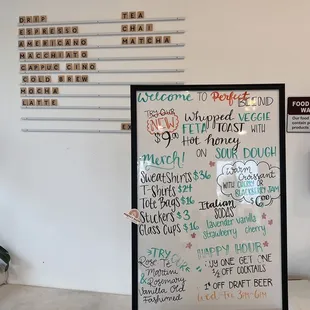 DRIP
ESPRESSO
AMERICANO
MACCHIATO
CAPPUCCINO
COLD BREW
MOCHA
LATTE
TEA
CHAI
MATCHA
Welcome TO Perfect BLEND
TRY OUR
NEW
$9
Whipped VEGGIE
FETA TOAST WITH
Hot honey
ON SOUR DOUGH
Merch!
SweatShirts $36
T-Shirts $24
Tote Bags $16
Stickers $3
Glass Cups $16
Warm
Croissant
WITH
JAM
Italian
SODAS
Lavender Vanilla
Strawberry cherry
TRY
Rose
Martini
& Rosemary
Vanilla Old
Fashioned
HAPPY HOUR
BUY ONE GET ONE
1/2 OFF COCKTAILS
$1 OFF DRAFT BEER
FOOD
WA
Our food